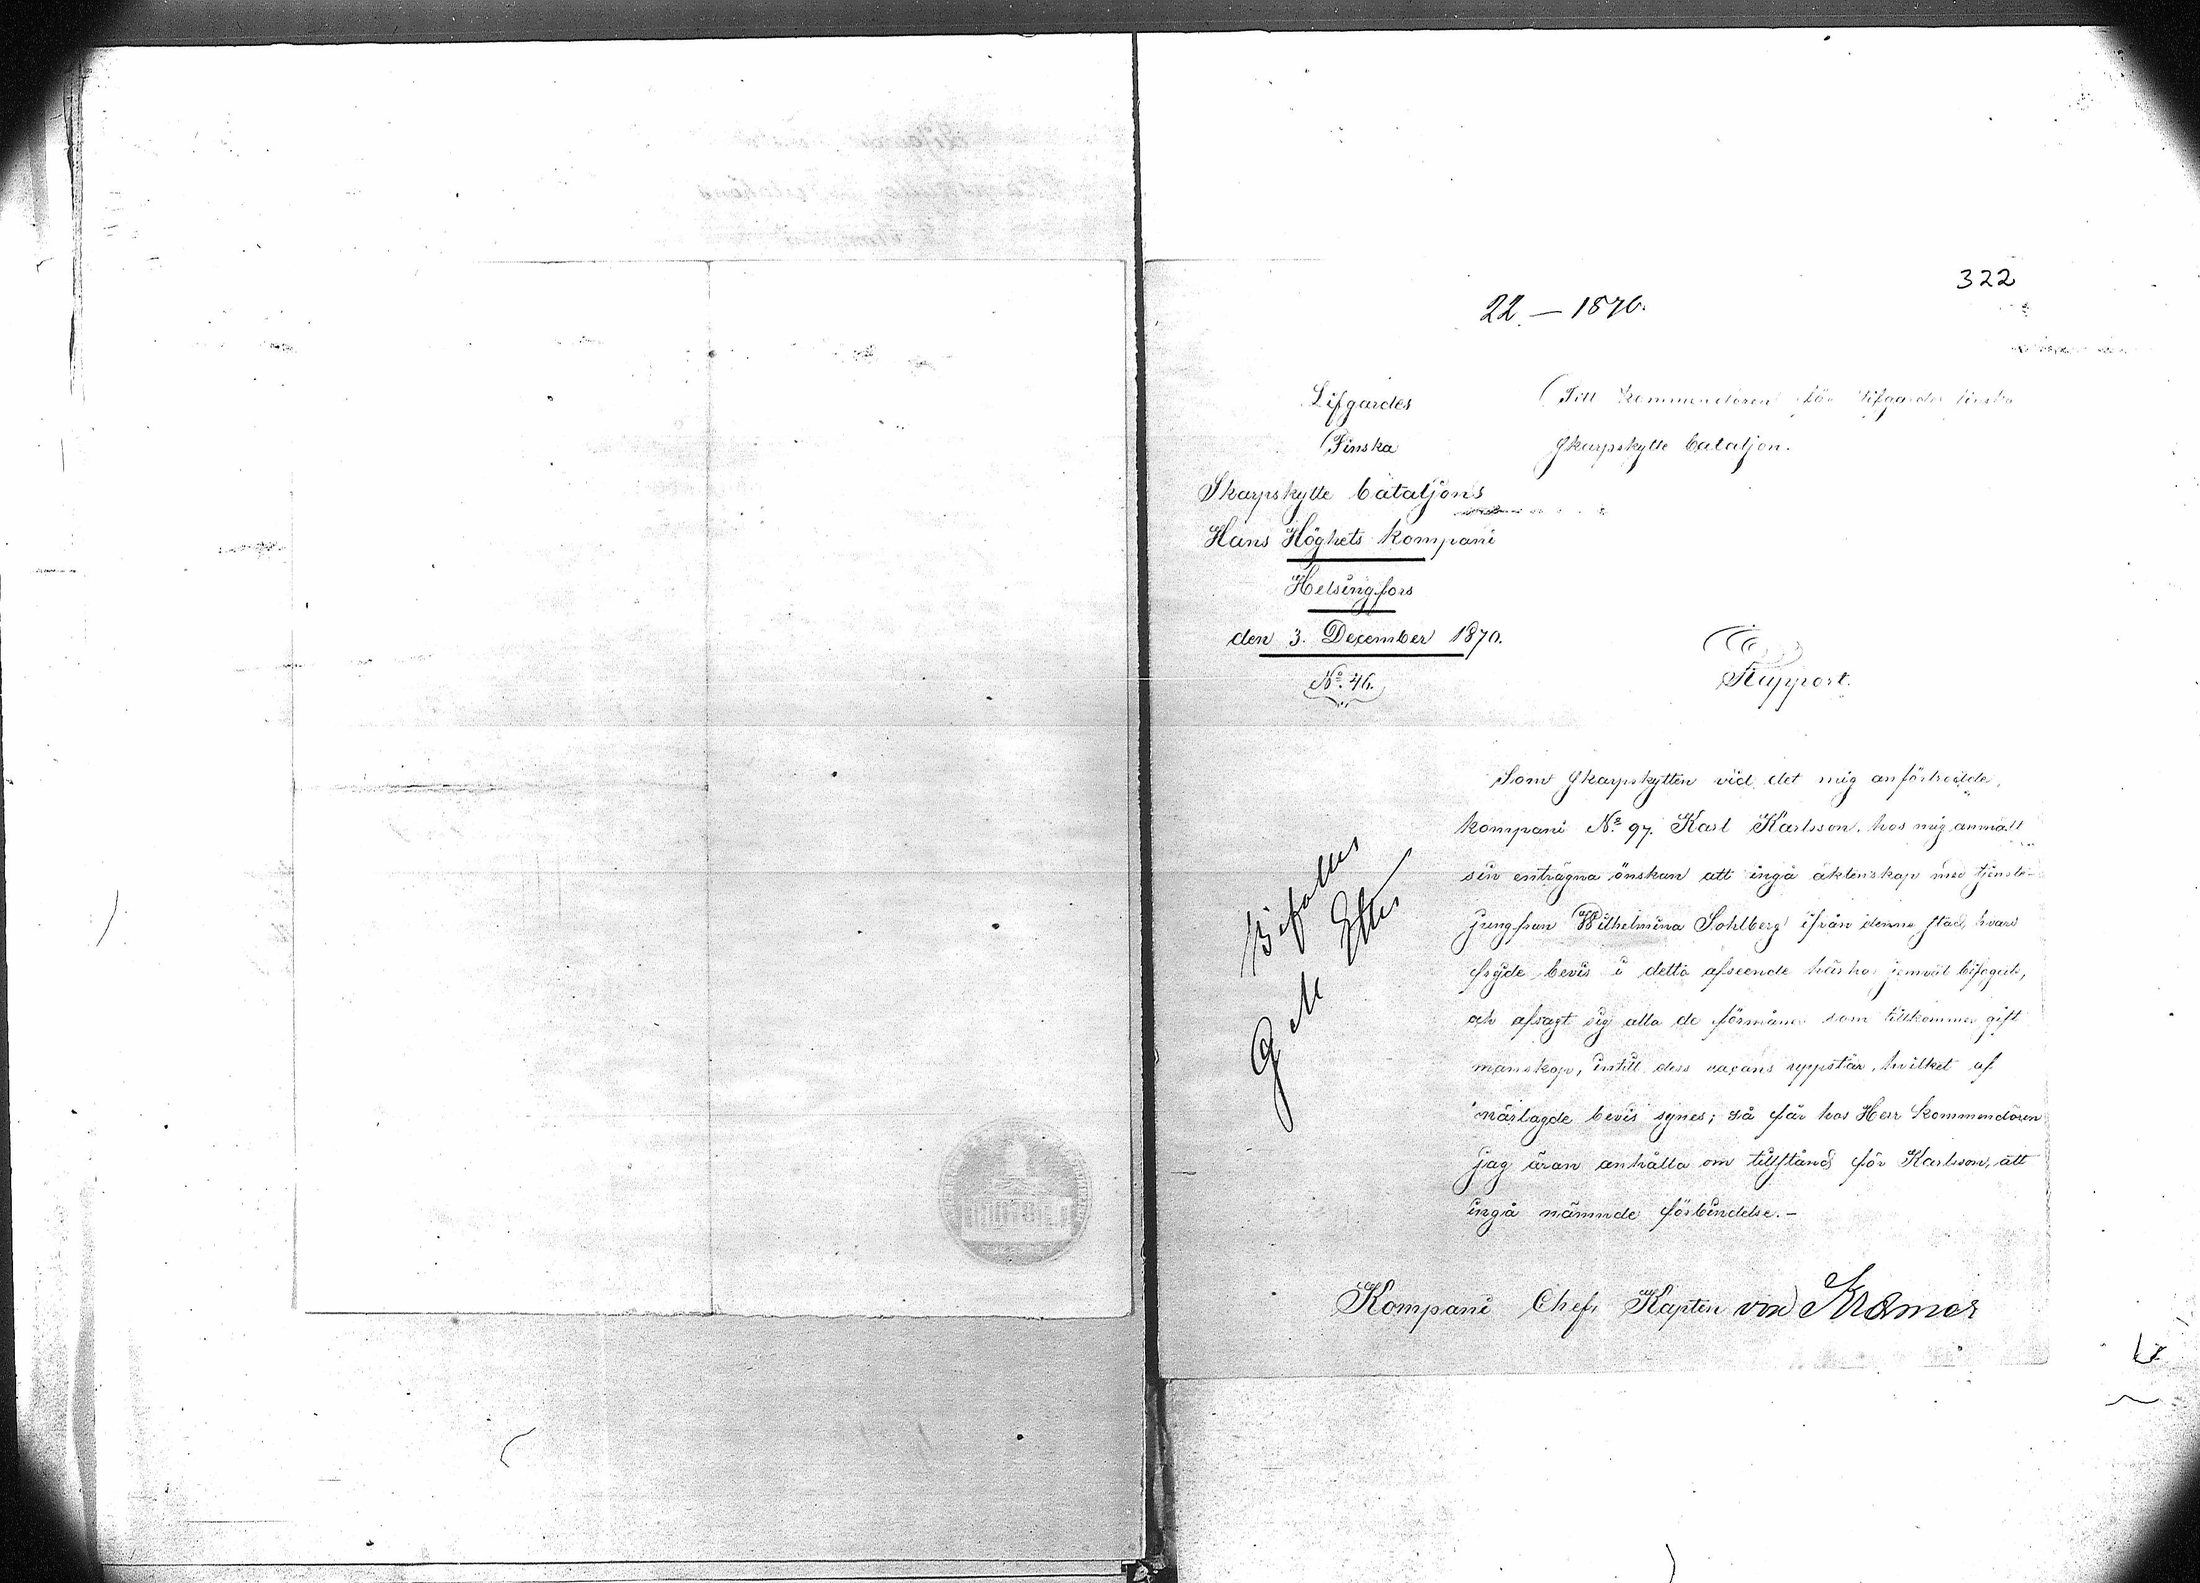 322
22. — 1870.
Lifgardes
Finska
Skarpskytte bataljons
Hans Höghets kompani
Helsingfors
den 3. December 1870.
No. 46.
Till kommendören för Lifgardes finska
Skarpskytte bataljon.
Rapport.
Som Skarpskytten vid det mig anförtrodde
kompani No 97. Karl Karlsson, hos mig anmält
sin enträgna önskan att ingå äktenskap med tjenste-
jungfrun Wilhelmina Sohlberg ifrån denna stad, hvars
frejde bevis i detta afseende härhos jemväl bifogats,
och afsagt sig alla de förmåner som tillkommer gift
manskap, intill dess vacans uppstår, hvilket af
närlagde bevis synes; så får hos Herr Kommendören
jag äran anhålla om tillstånd för Karlsson, att
ingå nämnde förbindelse.—
Kompani Chefs Kapten von Kræmer
Bifalles